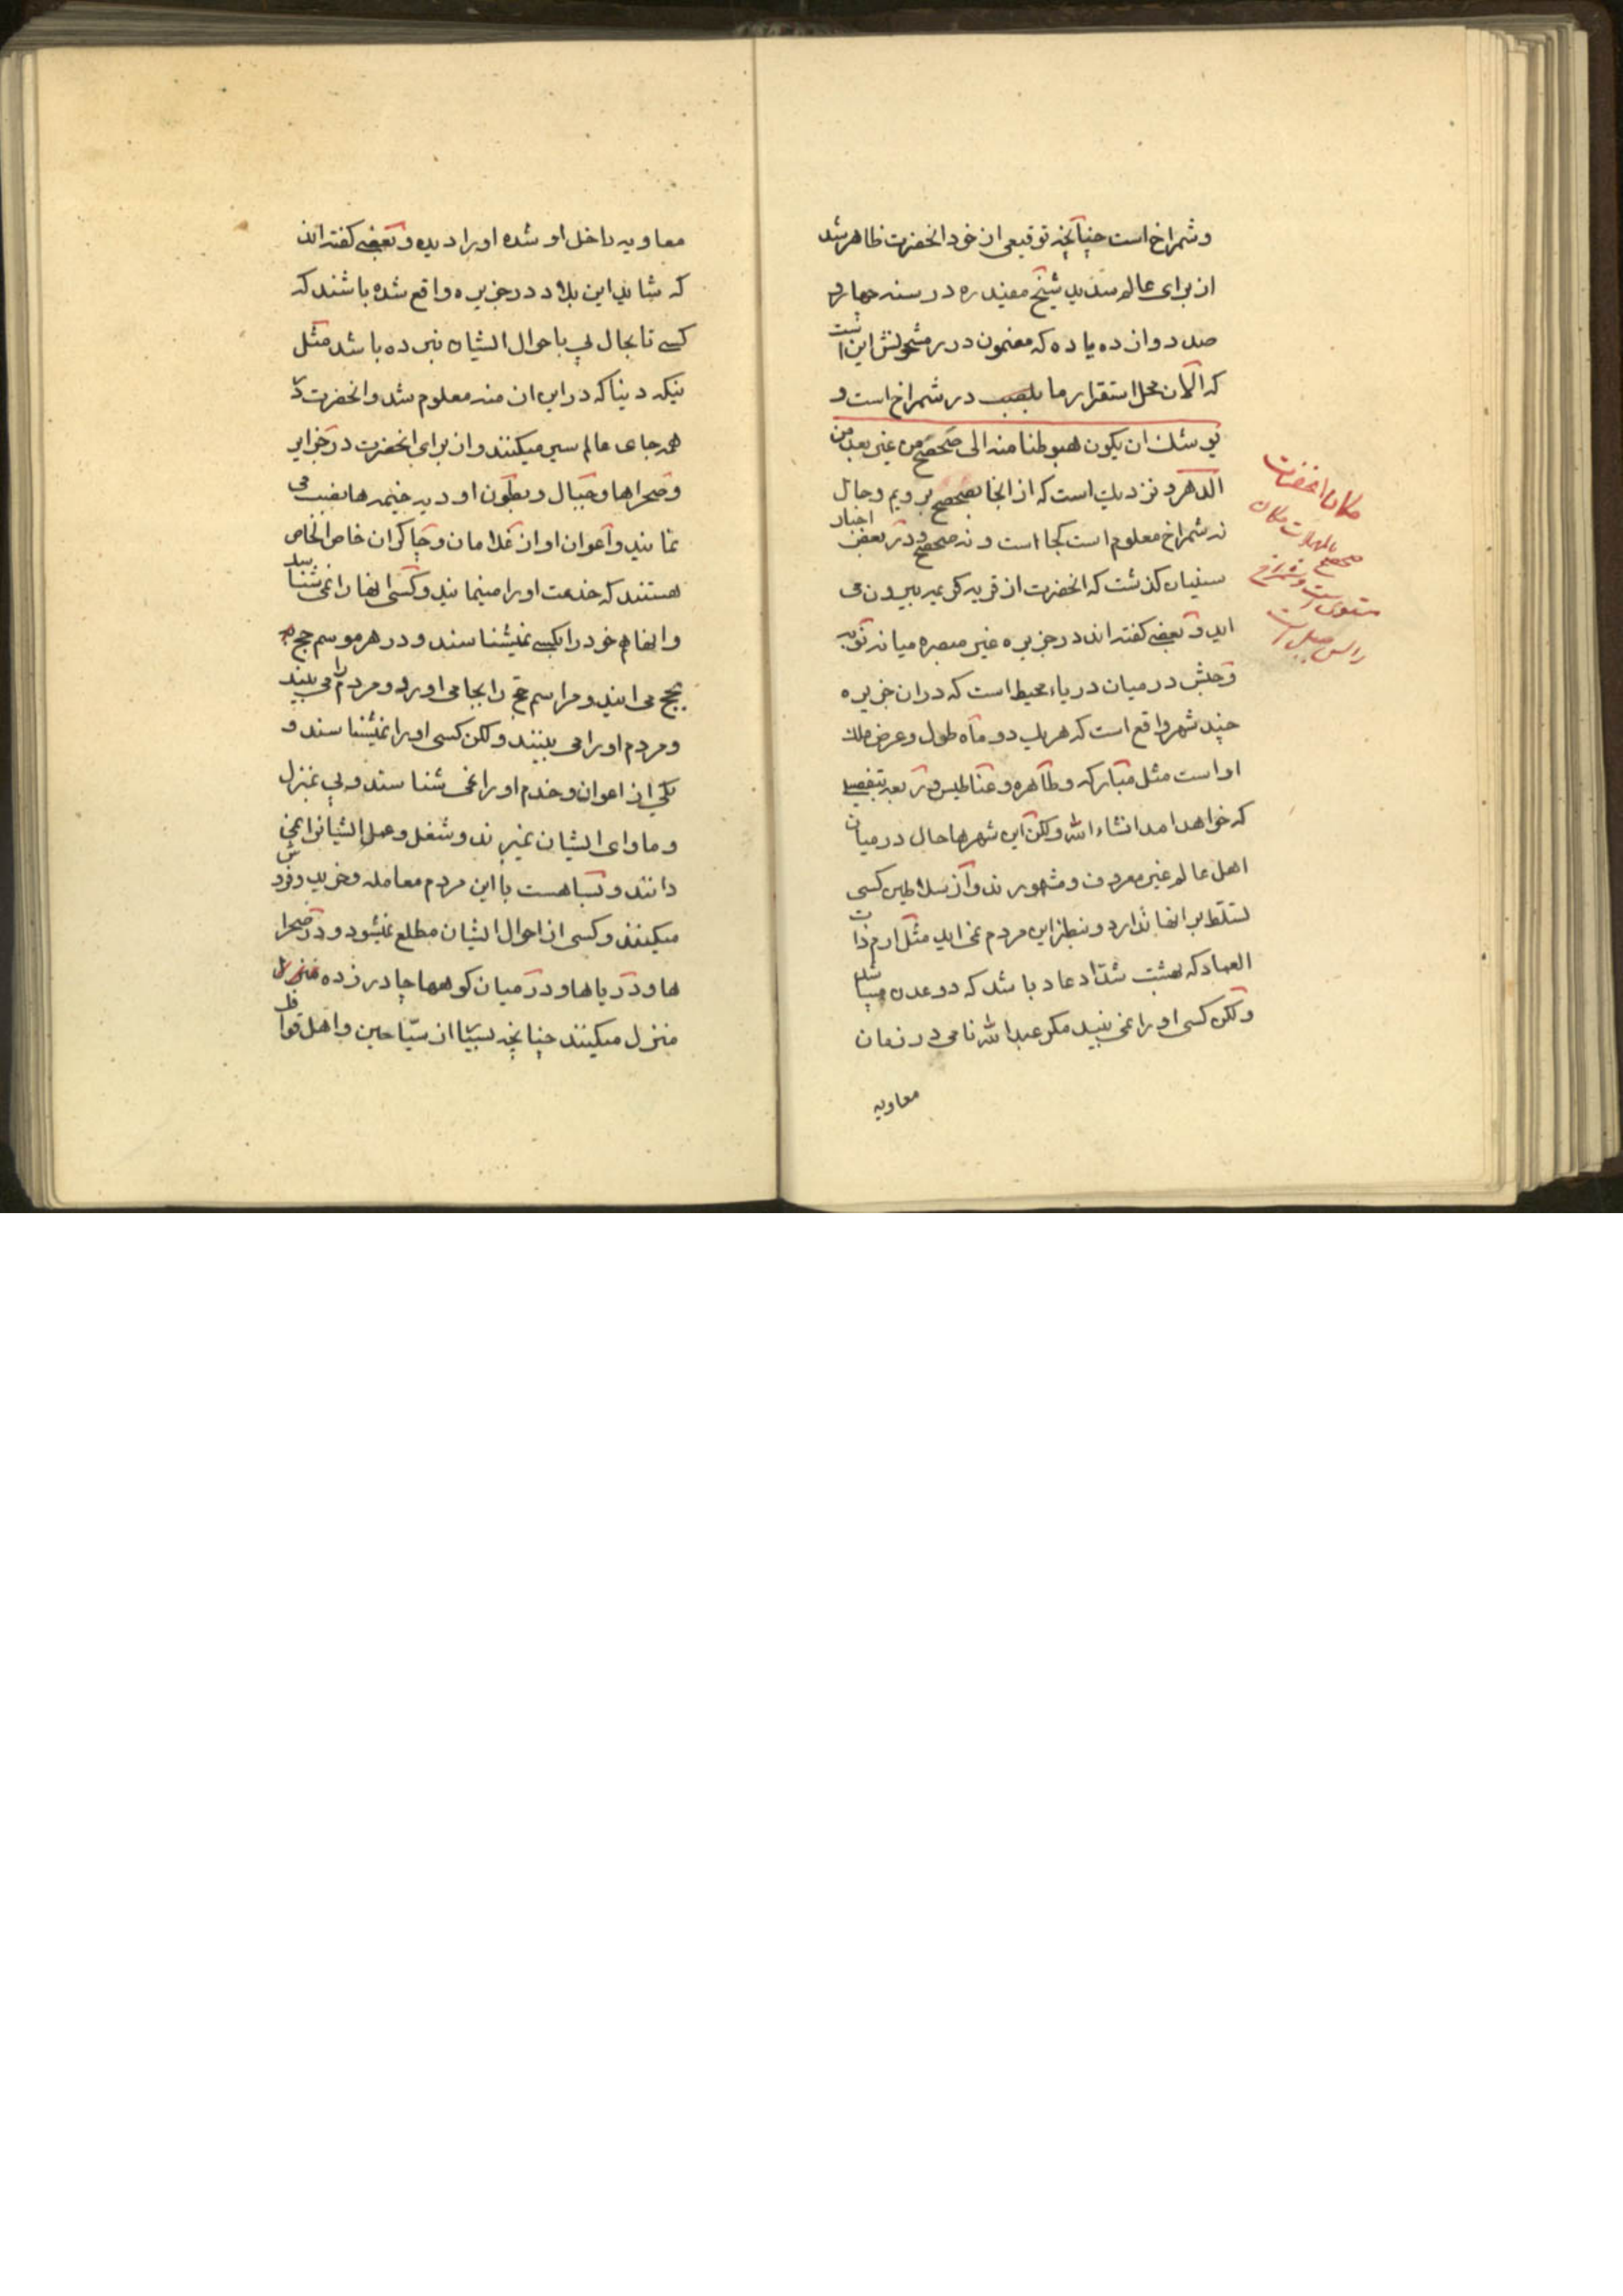 وشمراخ است چنانچه توقیعی از خود انحضرت ظاهر شد
از برای عالم سدید شیخ مفید ره در سنه چهار
صد و دوازده یا ده که مضمون درر مشحونش این است
که الان محل استقرار ما بلهب در شمراخ است و
یوشک ان یکون هبوطنا منه الی صحصح من غیر بعد من
الدهر و نزدیک است که از انجا بصحصح برویم و حال
نه شمراخ معلوم است کجا است و نه صحصح و در بعض اخبار
سنیان کذشت که انحضرت از قریه کرعه بیرون می
اید و بعضی کفته اند در جزیره غیر مبصره میانه نوبه
وحبش در میان دریاء محیط است که در ان جزیره
چند شهر واقع است که هر یک دو ماه طول و عرض ملک
او است مثل مبارکه و طاهره و عناطیس و رابعه بتفصیلی
که خواهد امد انشاء الله ولکن این شهرها حال در میان
اهل عالم غیر معروف و مشهورند و از سلاطین کسی
تسلط بر انها ندارد و بنظر این مردم نمی اید مثل ارم ذات
العماد که بهشت شداد عاد باشد که در عدن میباشد
ولکن کسی او را نمی بیند مکر عبد الله نامی در زمان
معاویه
مکان انحضرت
صحصح بالمهملات مکان
مستوی است و شمراخ
راس جبل است
معاویه داخل او شده او را دیده و بعضی کفته اند
که شاید این بلاد در جزیره واقع شده باشند که
کسی تا بحال پی باحوال ایشان نبرده باشد مثل
ینکه دنیا که در این ازمنه معلوم شد و انحضرت در
همه جای عالم سیر میکنند و از برای انحضرت در جزایر
و صحراها و جبال و بطون اودیه خیمه ها نصب می
نمایند و اعوان او از غلامان و چاکران خاص الخاص
هستند که خدمت او را مینمایند و کسی انها را نمی شناسد
و انها هم خود را بکسی نمیشناسند و در هر موسم حج
بحج می ایند و مراسم حج را بجا می اورد و مردم را می بیند
و مردم او را می بینند ولکن کسی او را نمیشناسند و
یکی از اعوان و خدم او را نمی شناسند و پی بمنزل
و ماوای ایشان نمیبرند و شغل و عمل ایشانرا نمی
دانند و بسا هست با این مردم معامله و خرید و فروش
میکنند و کسی از احوال ایشان مطلع نمیشود و در صحرا
ها و دریاها و در میان کوهها چادر زده منزل
منزل میکنند چنانچه بسیا از سیّاحین و اهل قوافل